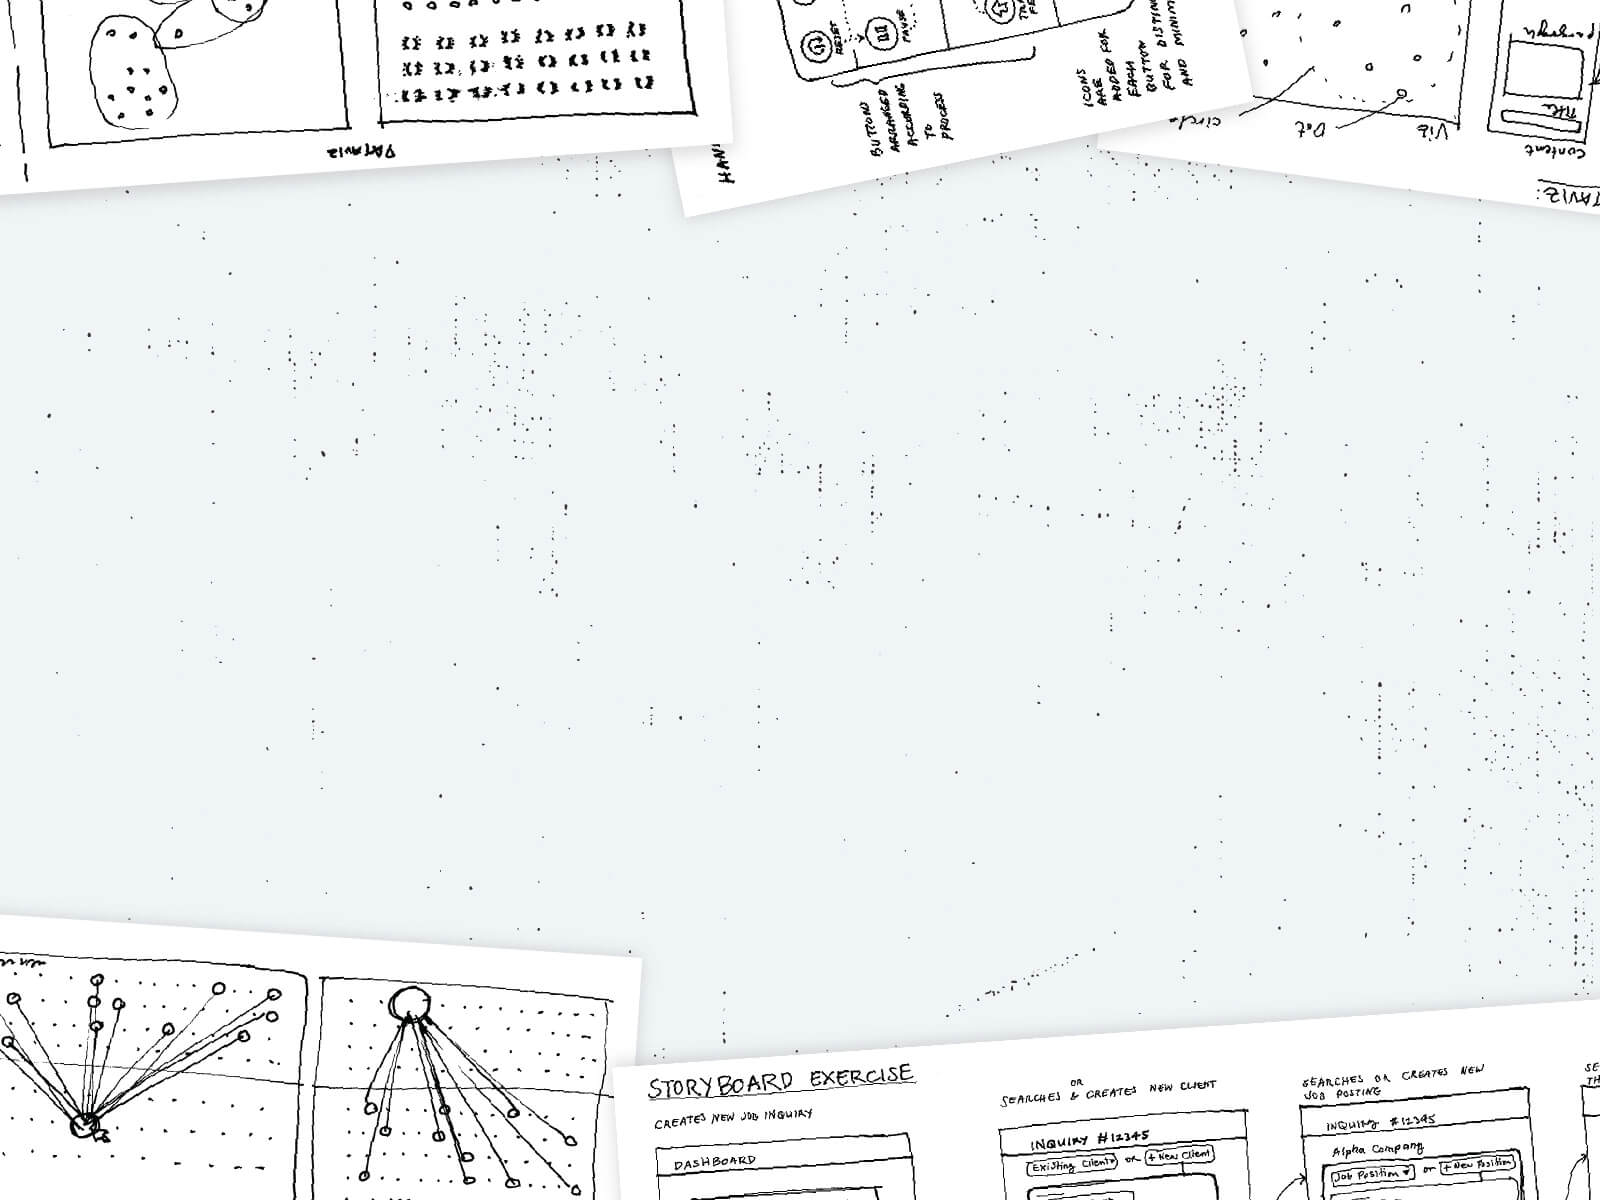 DATAVIZ
RESET
PAUSE
BUTTONS
ARRANGED
ACCORDING
TO
PROCESS
ICONS
ARE
ADDED FOR
EACH
BUTTON
FOR DISTIN
AND MINIM
HAN
Circle
Dot
Viz
Paragraph
Title
Content
TAVIZ:
STORYBOARD EXERCISE
CREATES NEW JOB INQUIRY
DASHBOARD
OR
SEARCHES & CREATES NEW CLIENT
INQUIRY #12345
Existing Client or + New Client
SEARCHES OR CREATES NEW
JOB POSTING
INQUIRY #12345
Alpha Company
Job Position or + New Position
SE
TH